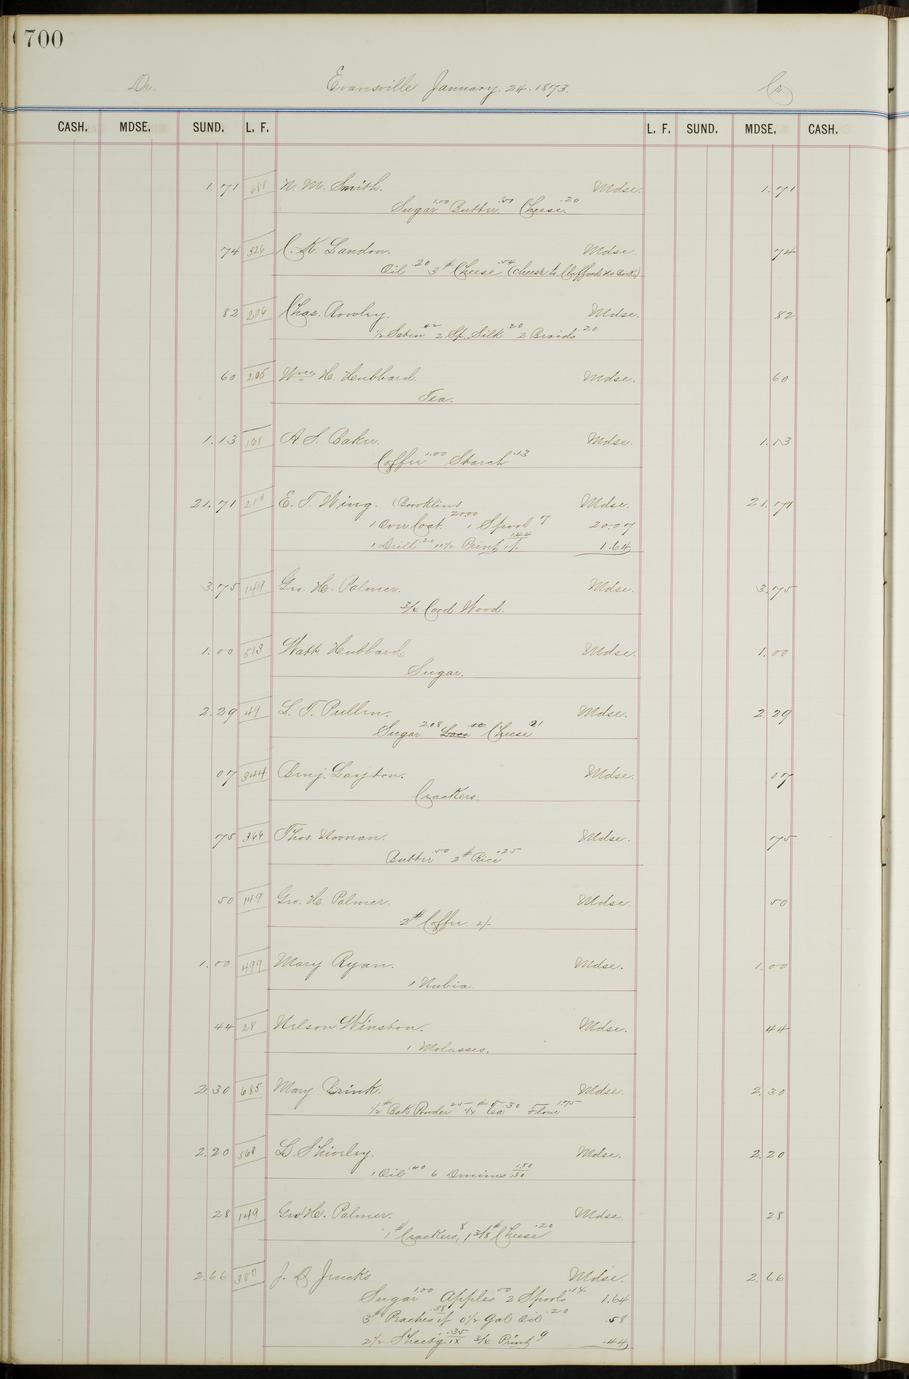 700
Dr. Evansville January. 24. 1873. Cr.
CASH. MDSE. SUND. L. F. L. F. SUND. MDSE. CASH.
1.71 N. M. Smith. Mdse. 1.71
Sugar 1.00 Butter .50 Cheese .20
74 326 C. K. Landon. Mdse. 74
Oil .20 3# Cheese .54 (cheese to
82 Chas. Rowley. Mdse. 82
1/2 Satin 42 2 Sp. Silk .20 2 Braids .20
60 205 Wm H. Hubbard. Mdse. 60
Tea.
1.13 A. S. Baker. Mdse. 1.13
Coffee 1.00 Starch .13
21.71 E. T. Wing. (Brooklin) Mdse. 21.71
1 Over Coat 20.00 1 Spool 7 20.07
1 Drill .20 Print 1.44 1.64
3.75 149 Geo. H. Palmer. Mdse. 3.75
3/4 Cord Wood.
1.00 513 Watt Hubbard Mdse. 1.00
Sugar.
2.29 49 L. T. Pullen. Mdse. 2.29
Sugar 2.08 Cheese 21
07 344 Benj. Layton. Mdse. 07
Crackers.
75 366 Thos. Noonan. Mdse. 75
Butter .50 2# Rice .25
50 149 Geo. H. Palmer. Mdse. 50
2# Coffee 2/-
1.00 499 Mary Ryan. Mdse. 1.00
1 Nubia.
44 28 Nelson Winston. Mdse. 44
1 Molasses.
2.30 685 Mary Brink. Mdse. 2.30
1/2# Bak Powder 25 Tea .30 Flour 1.75
2.20 568 D Shively. Mdse. 2.20
1 Oil .40 6 1.80 .30
28 149 Geo. H. Palmer. Mdse. 28
1# Crackers 8 1 3/8# Cheese .20
2.66 J. D. Jencks Mdse. 2.66
Sugar 1.00 Apples 50 2 Spools .14 1.64
3# Peaches .38 0 1/2 Gal Oil .20 .58
2 1/2 Sheet'g .35 3/4 Print 9 .44